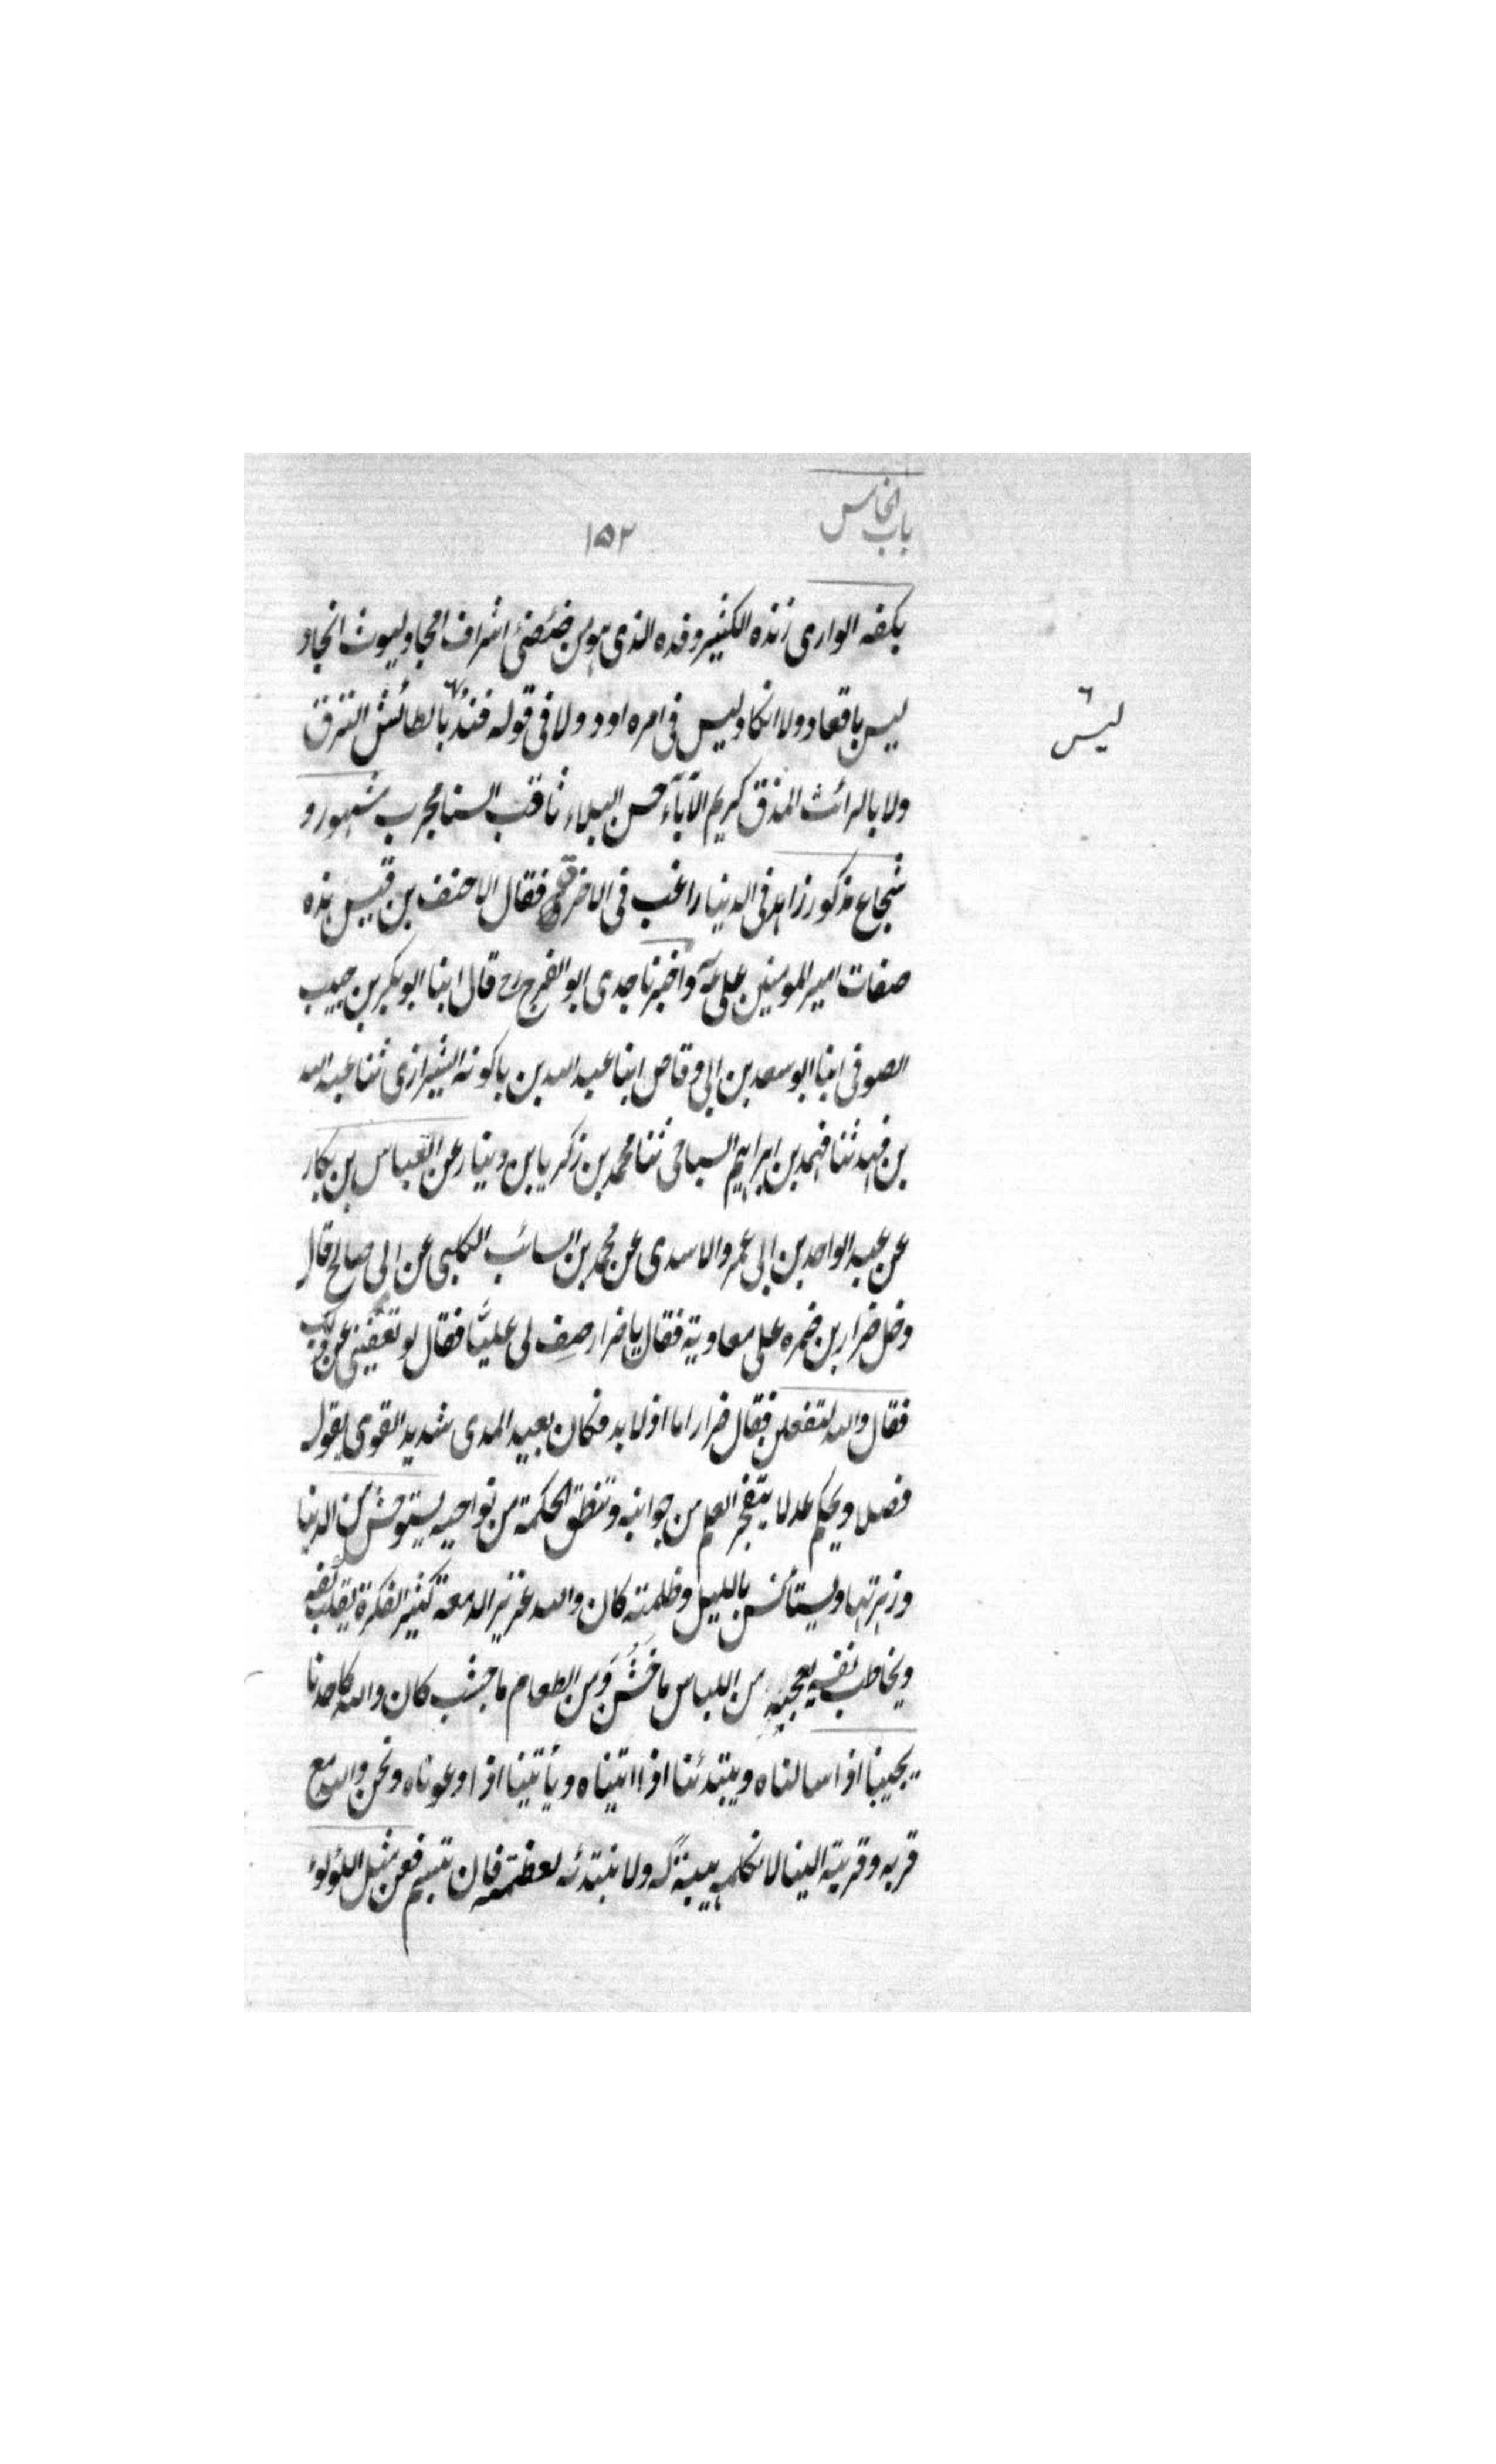 باب الخامس
١٥٢
بكفه الواري زنده الكثير وفده الذي هو من ضئضئ اشراف امجاد ليوث انجاد
ليس باقعاد ولا انكاد ليس في امره اود ولا في قوله فند بالطائش النزق
ليس
ولا بالرائث المذق كريم الآباء حسن البلاء ثاقب السنا مجرب مشهور و
شجاع مذكور زاهد في الدنيا راغب في الاخرى فقال الاحنف بن قيس هذه
صفات امير المومنين علي واخبرنا جدي ابو الفرج قال ابنا ابو بكر بن حبيب
الصوفي ابنا ابو سعد بن ابي وقاص ابنا عبد الله بن باكويه الشيرازي ثنا عبد الله
بن فهد ثنا فهد بن ابراهيم الساحى ثنا محمد بن زكريا بن دينار عن العباس بن بكار
عن عبد الواحد بن ابي عمرو الاسدي عن محمد بن السائب الكلبي عن ابي صالح قال
دخل ضرار بن ضمره على معاوية فقال يا ضرار صف لي عليّا فقال لو تعفيني عن ذلك
فقال والله لتفعلن فقال ضرار اما اذ لا بد فكان بعيد المدى شديد القوى يقول
فصلا ويحكم عدلا يتفجر العلم من جوانبه وتنطق الحكمة من نواحيه يستوحش من الدنيا
وزهرتها ويستأنس بالليل وظلمته كان والله غزير الدمعة كثير الفكرة يقلب كفه
ويخاطب نفسه يعجبه من اللباس ما خشُن وَمن الطعام ما جشب كان والله كاحدنا
يجيبنا اذا سالناه ويبتدئنا اذا اتيناه ويأتينا اذا دعوناه ونحن والله مع
قربه وقربته الينا لا نكلمه هيبة له ولا نبتدئه لعظمته فان تبسم فعن مثل اللؤلوء